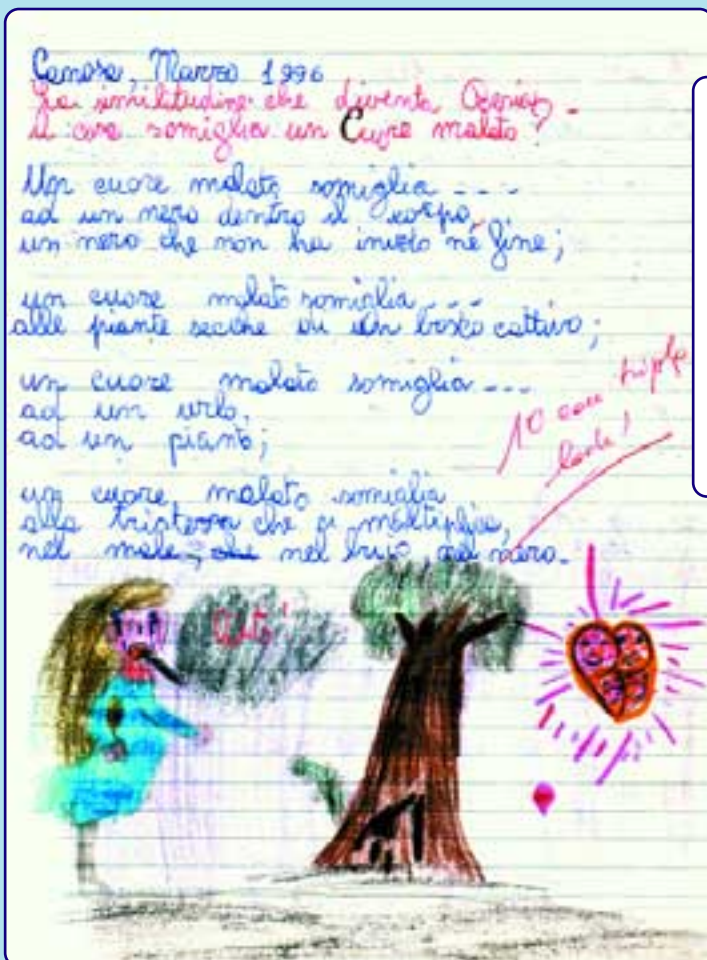 Canosa, Marzo 1996
La similitudine che diventa Poesia -
A cosa somiglia un Cuore malato?
Un cuore malato somiglia ----
ad un nero dentro il corpo,
un nero che non ha inizio nè fine;
un cuore malato somiglia ---
alle piante secche di un bosco cattivo;
un cuore malato somiglia ---
ad un urlo,
ad un pianto;
un cuore malato somiglia
alla tristezza che si moltiplica,
nel male, che nel buio del nero.
10 con tripla
lode!
Aiuto!